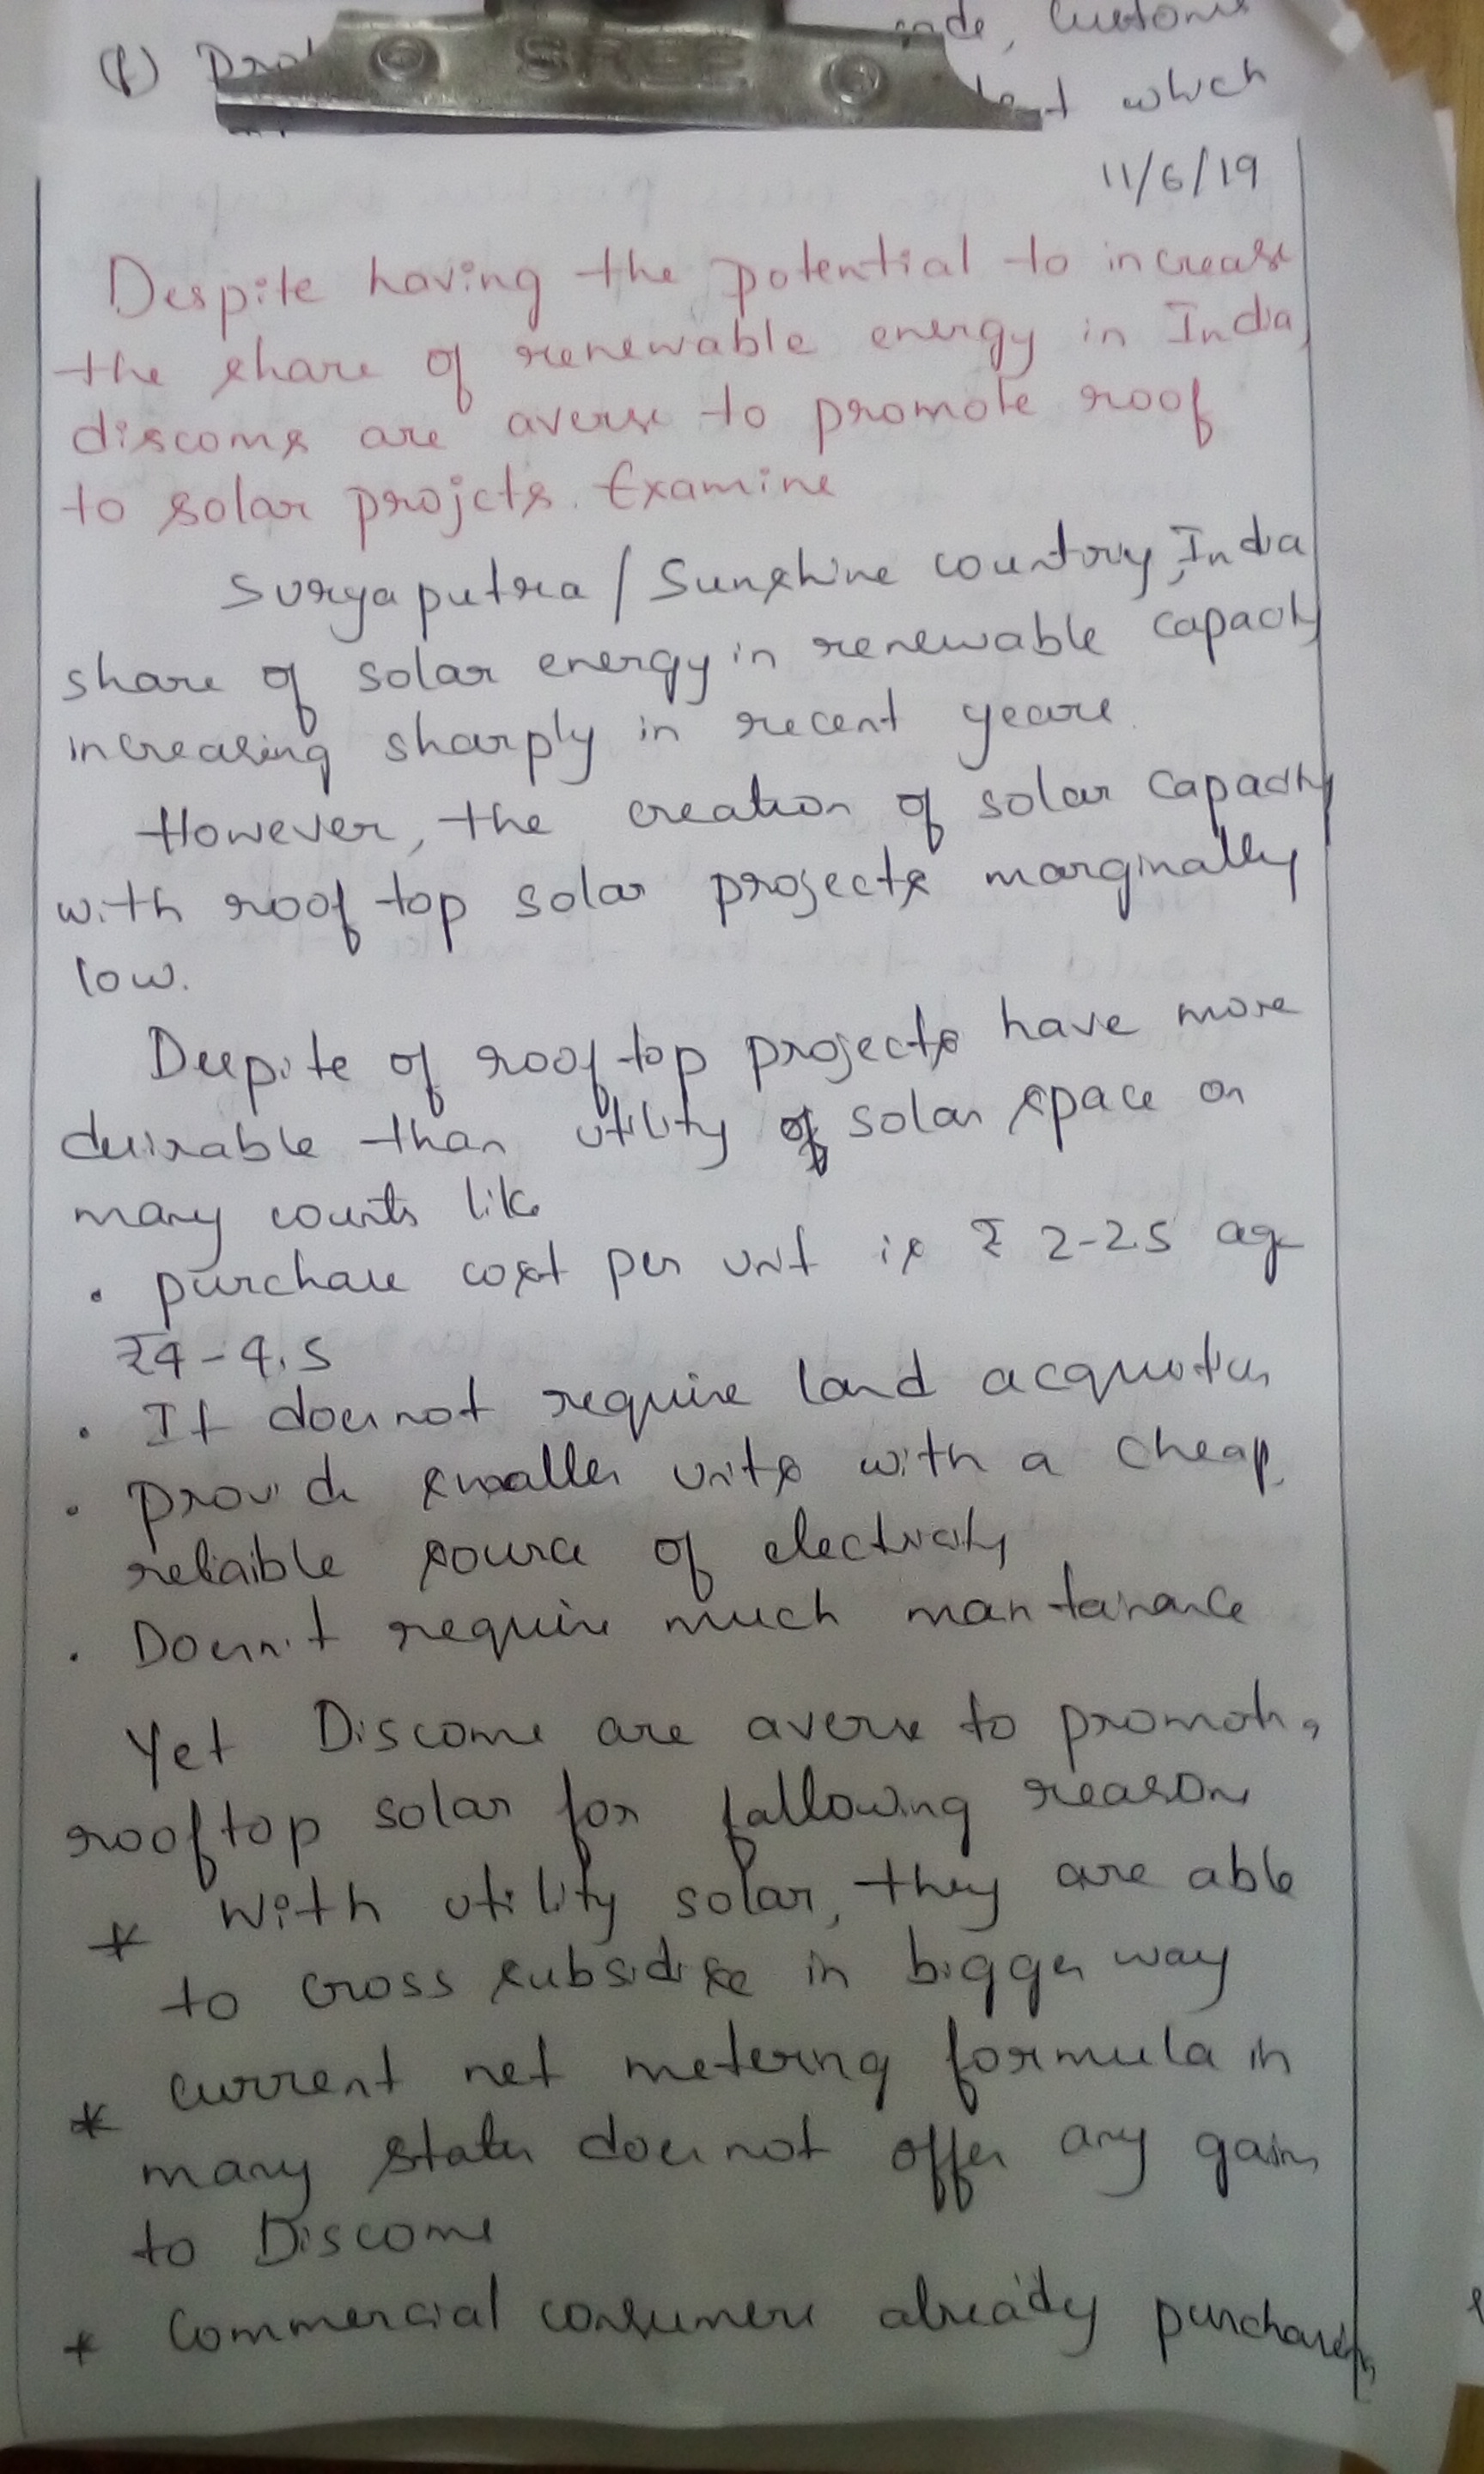 (f)
SREE
Custome
which
11/6/19
Despite having the potential to increase
the share of renewable energy in India,
discoms are averse to promote roof
to solar projcts. Examine
Suryaputra / Sunshine country, India
share of solar energy in renewable capacity
increasing sharply in recent years.
However, the creation of solar capacity
with roof top solar projects marginally
low.
Despite of roof top projects have more
desirable than utility of solar space on
many counts like
• purchase cost per unit is ₹ 2-2.5 ag
₹4-4.5
• It does not require land
• provide smaller units with a cheap,
reliaible source of electricity
• Doesn't require much maintanance
Yet Discoms are averse to promoting
rooftop solar for following reasons
* With utility solar, they are able
to cross subsidise in bigger way
* current net metering formula in
many states does not offer any gains
to Discoms
* Commercial consumers already purchasing